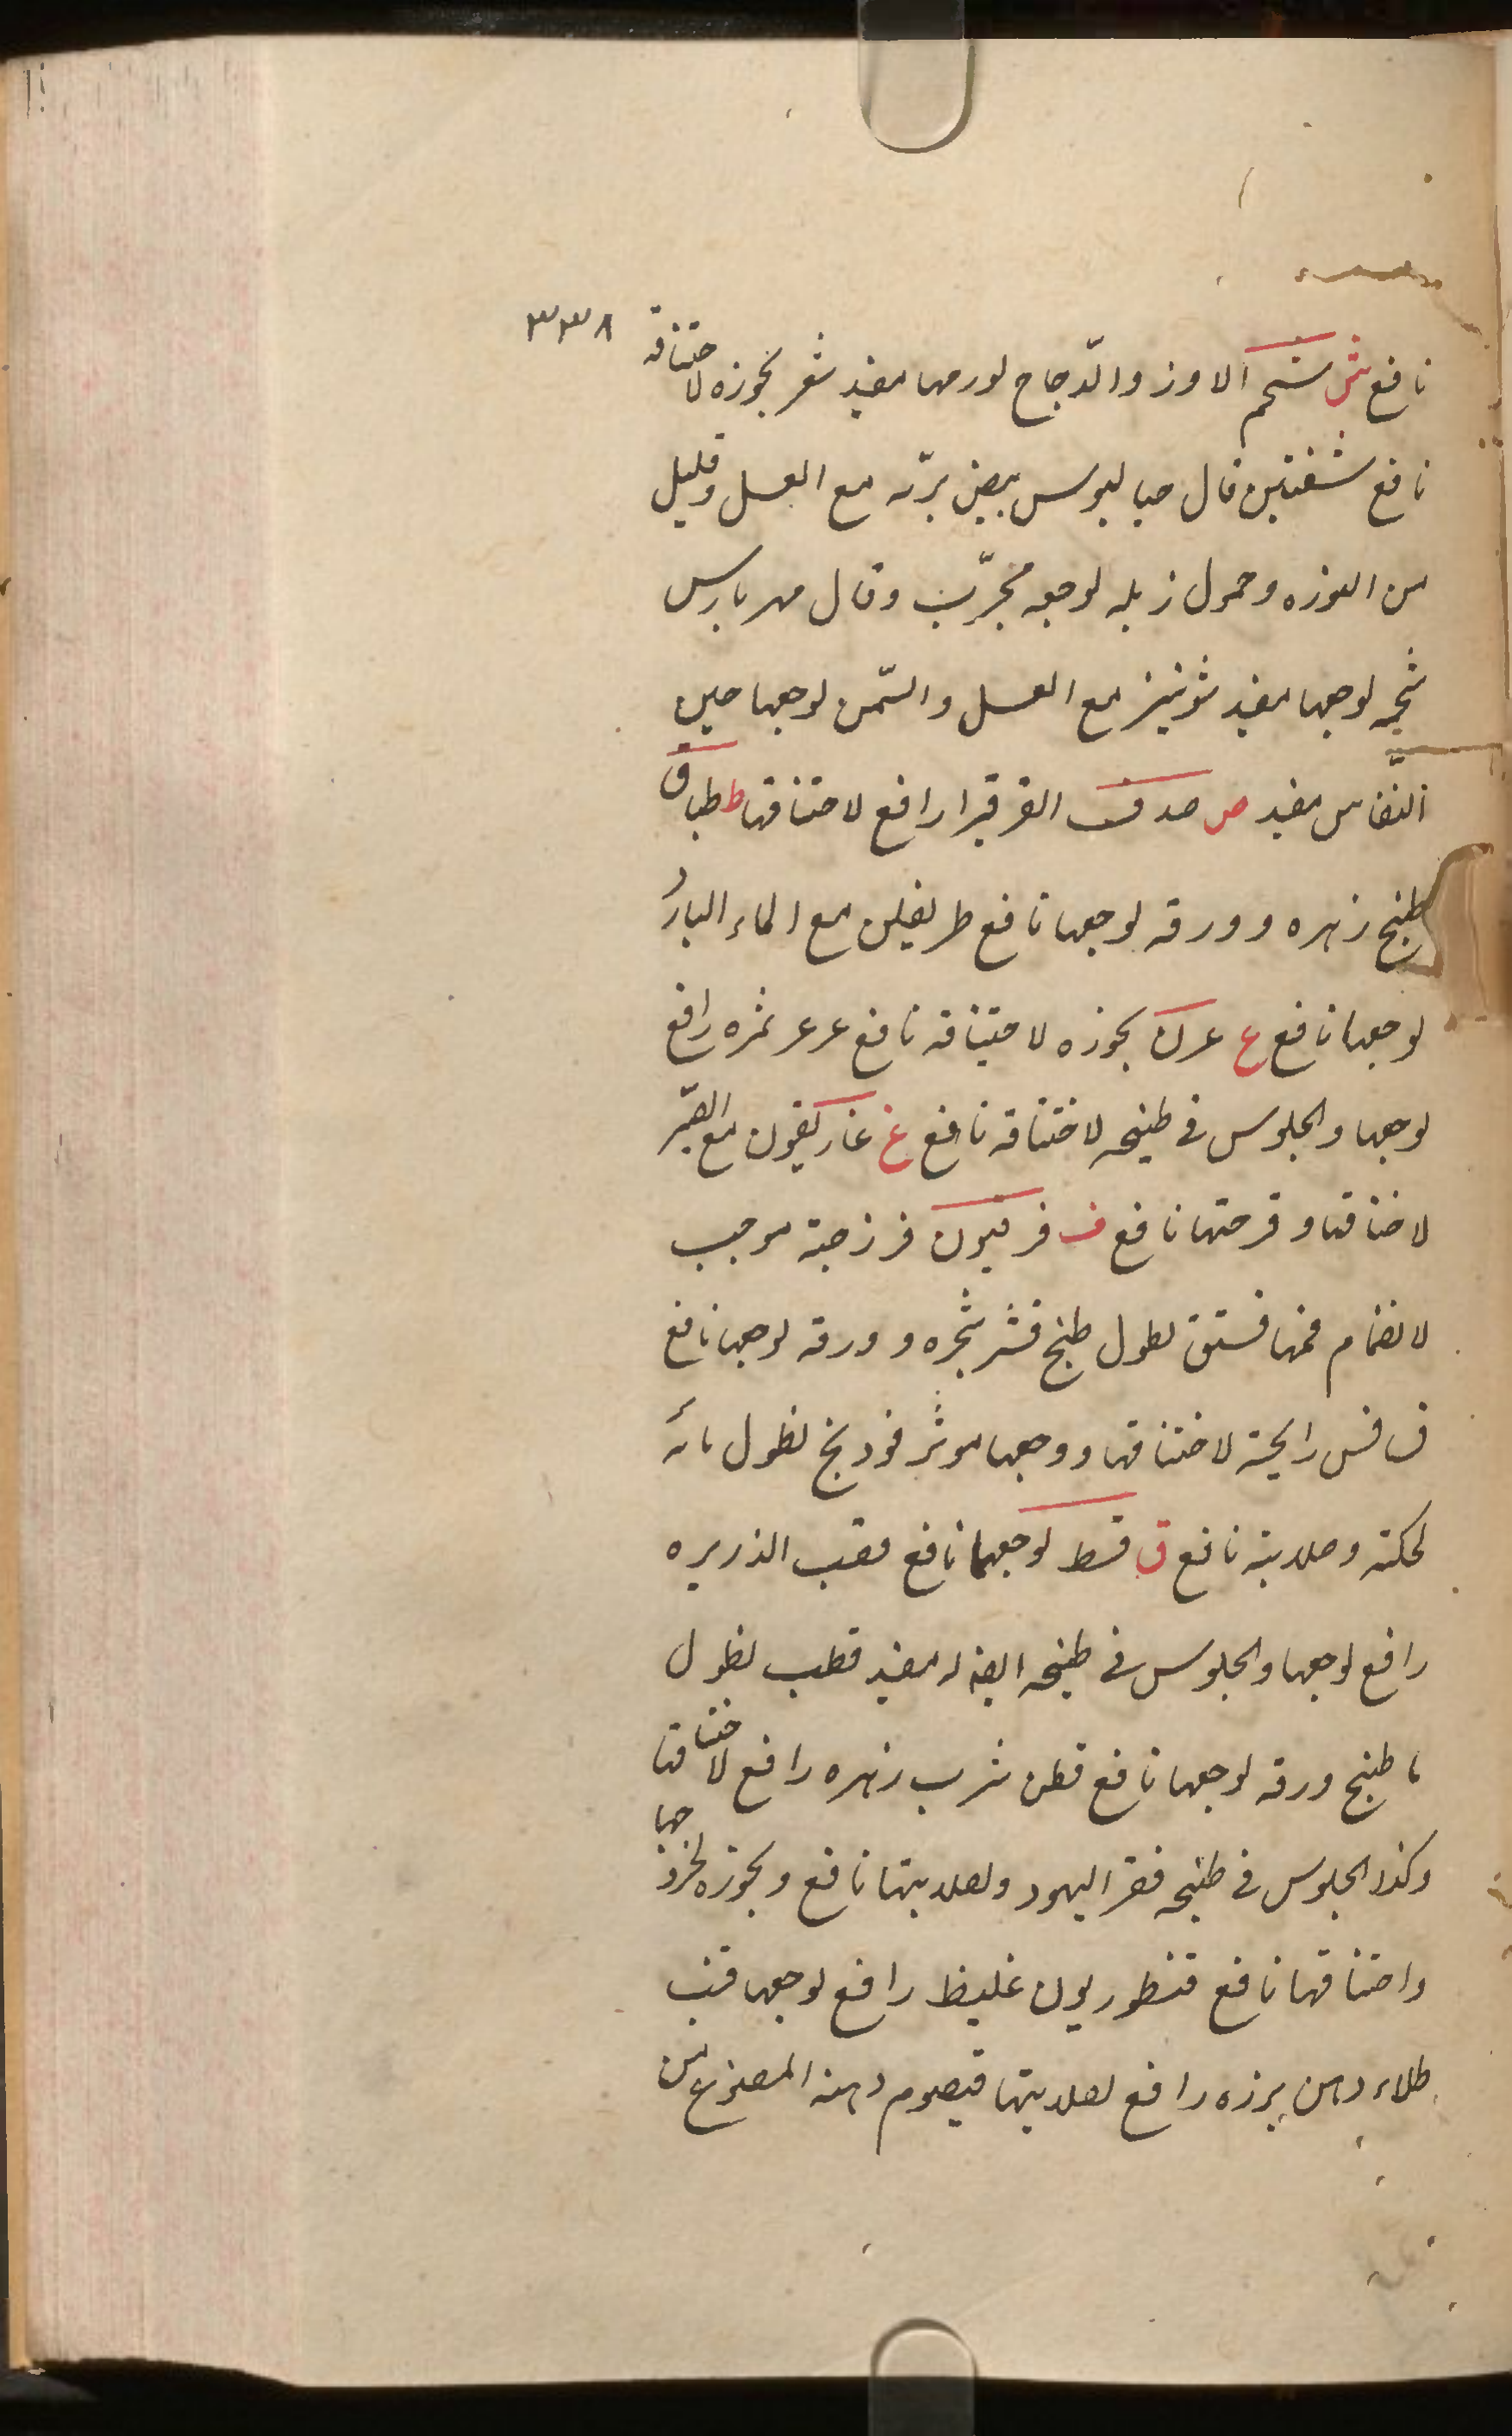 ٣٣٨
نافع ش شحم الاوز والدّجاج لورمها مفيد شعر بخوره لاختناقه
نافع شفنين قال جالينوس بيض برّيه مع العسل وقليل
من النوره وحمول زبله لوجعه مجرّب وقال مهرارس
شحمه لوجعها مفيد شونيز مع العسل والسّمن لوجعها حين
النّفاس مفيد ص صدف الفرفيرا رافع لاختناقها ط طباق
طبخ زهره وورقه لوجعها نافع طريفلن مع الماء البارد
لوجعها نافع ع عرن بخوره لاختناقه نافع عرعر ثمره رافع
لوجعها والجلوس فى طبيخه لاختناقه نافع غ غاريقون مع الصبر
لاختناقها وقرحتها نافع ف فربيون فرزجة موجب
لانضمام فمها فستق نطول طبخ قشر شجره وورقه لوجعها نافع
رايحته لاختناقها ووجعها موثر فودنج نطول مائه
لحكته وصلابته نافع ق قسط لوجعها نافع قصب الذريره
رافع لوجعها والجلوس فى طبيخه ايضا له مفيد قطب نطول
ما طبخ ورقه لوجعها نافع قطن شرب زهره رافع لاختناقها
وكذا الجلوس فى طبيخه قفر اليهود ولصلابتها نافع وبخوره لخروجها
واختناقها نافع قنطوريون غليظ رافع لوجعها قنب
طلاء دهن بزره رافع لصلابتها قيصوم دهنه المصنوع من